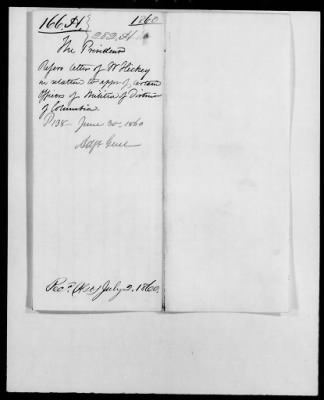 166. H. 1860
252. H.
The President
Refers letter of W Hickey
in relation to appt. of certain
Officers of Militia of District
of Columbia
P 138 - June 30, 1860
Adjt Genl
Recd. (A.G.O.) July 2. 1860.